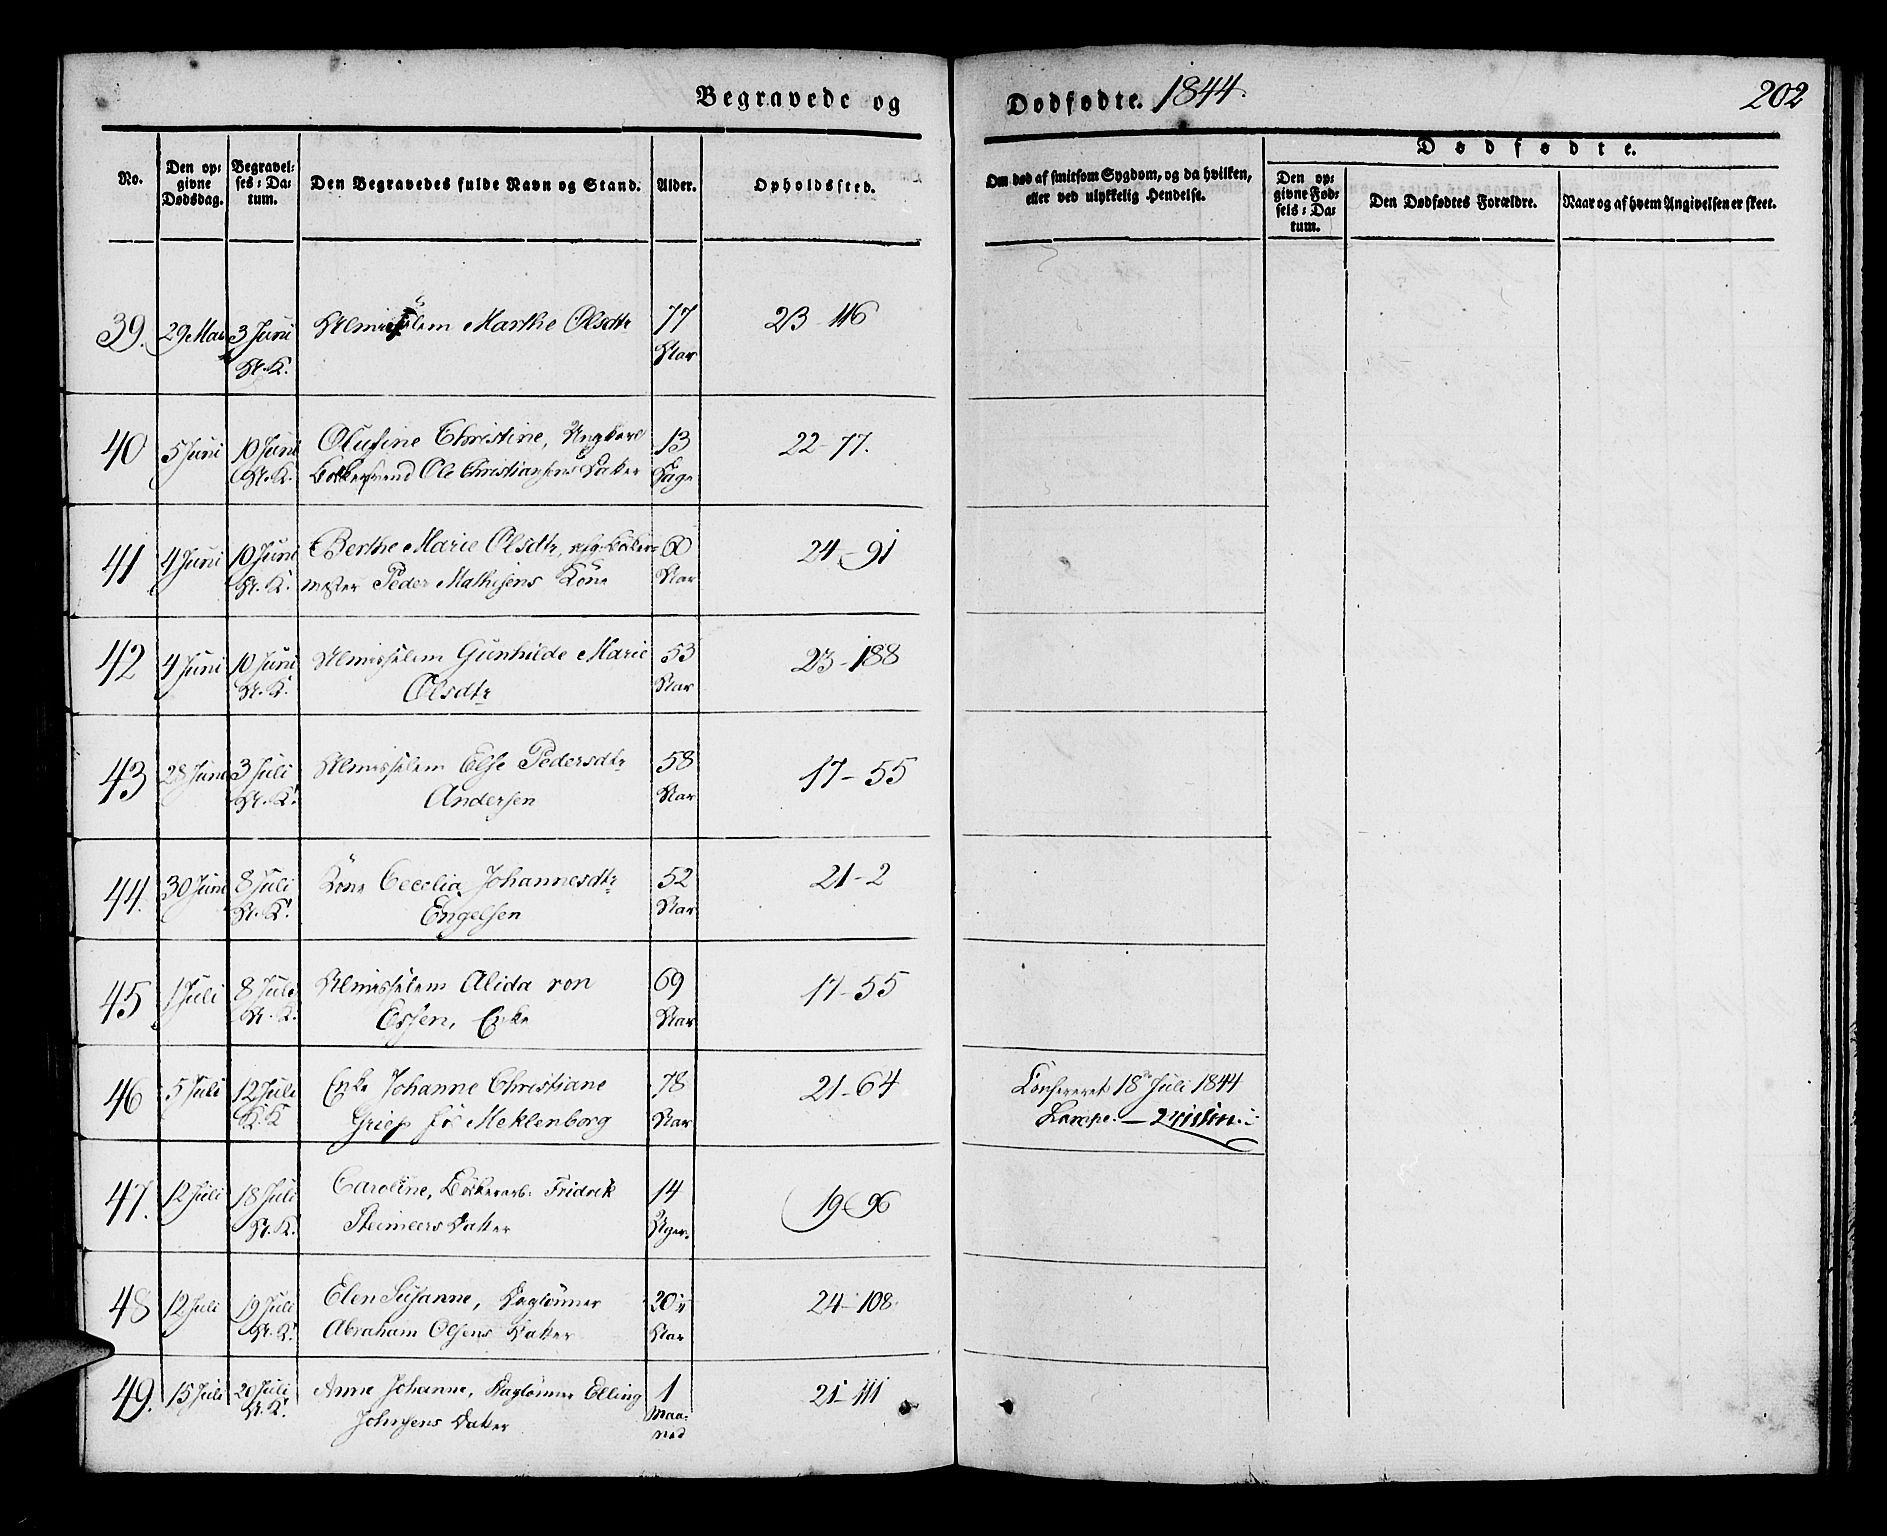 Begravede og
Dødfødte. 1844.
202
No.
Den op-
givne
Dødsdag.
Begravel-
ses-Da-
tum.
Den Begravedes fulde Navn og Stand.
Alder.
Opholdssted.
Om død af smitsom Sygdom, og da hvilken,
eller ved ulykkelig Hendelse.
Dødfødte.
Den op-
givne Fød-
sels-Da-
tum.
Den Dødfødtes Forældre.
Naar og af hvem Angivelsen er skeet.
39. 29 Mai 3 Juni Almisselem Marthe Olsdtr 77 23-116
St. K. Aar
40 5 Juni 10 Juni Olufine Christine, Ungkarl 13 22-77.
St. K. Ole Christiansens Datter Dage
41 4 Juni 10 Juni Berthe Marie Olsdtr, 60 24-91
St. K. mester Peder Mathisens Kone Aar
42 4 Juni 10 Juni Almisselem Gunhilde Marie 53 23-188
St. K. Olsdtr Aar
43 28 Juni 3 Juli Almisselem Else Pedersdtr 58 17-55
St. K. Andersen Aar
44. 30 Juni 8 Juli Kone Cecelia Johannesdtr 52 21-2
St. K. Engelsen Aar
45 1 Juli 8 Juli Almisselem Alida von 69 17-55
St. K. Essen, Enke Aar
46 5 Juli 12 Juli Enke Johanne Christiane 78 21-64 Confereret 18 Juli 1844
K. K Griep fø Meklenborg Aar
47. 12 Juli 18 Juli Caroline, Bødkerarb: Fridrik 14 19-96
St. K. Steimeers Datter Uger.
48 12 Juli 19 Juli Elen Susanne, Daglønner 20 24-108.
St. K. Abraham Olsens Datter Aar
49. 15 Juli 20 Juli Anne Johanne, Daglønner Elling 1 21-111
St. K. Johnsens Datter Maa-
ned